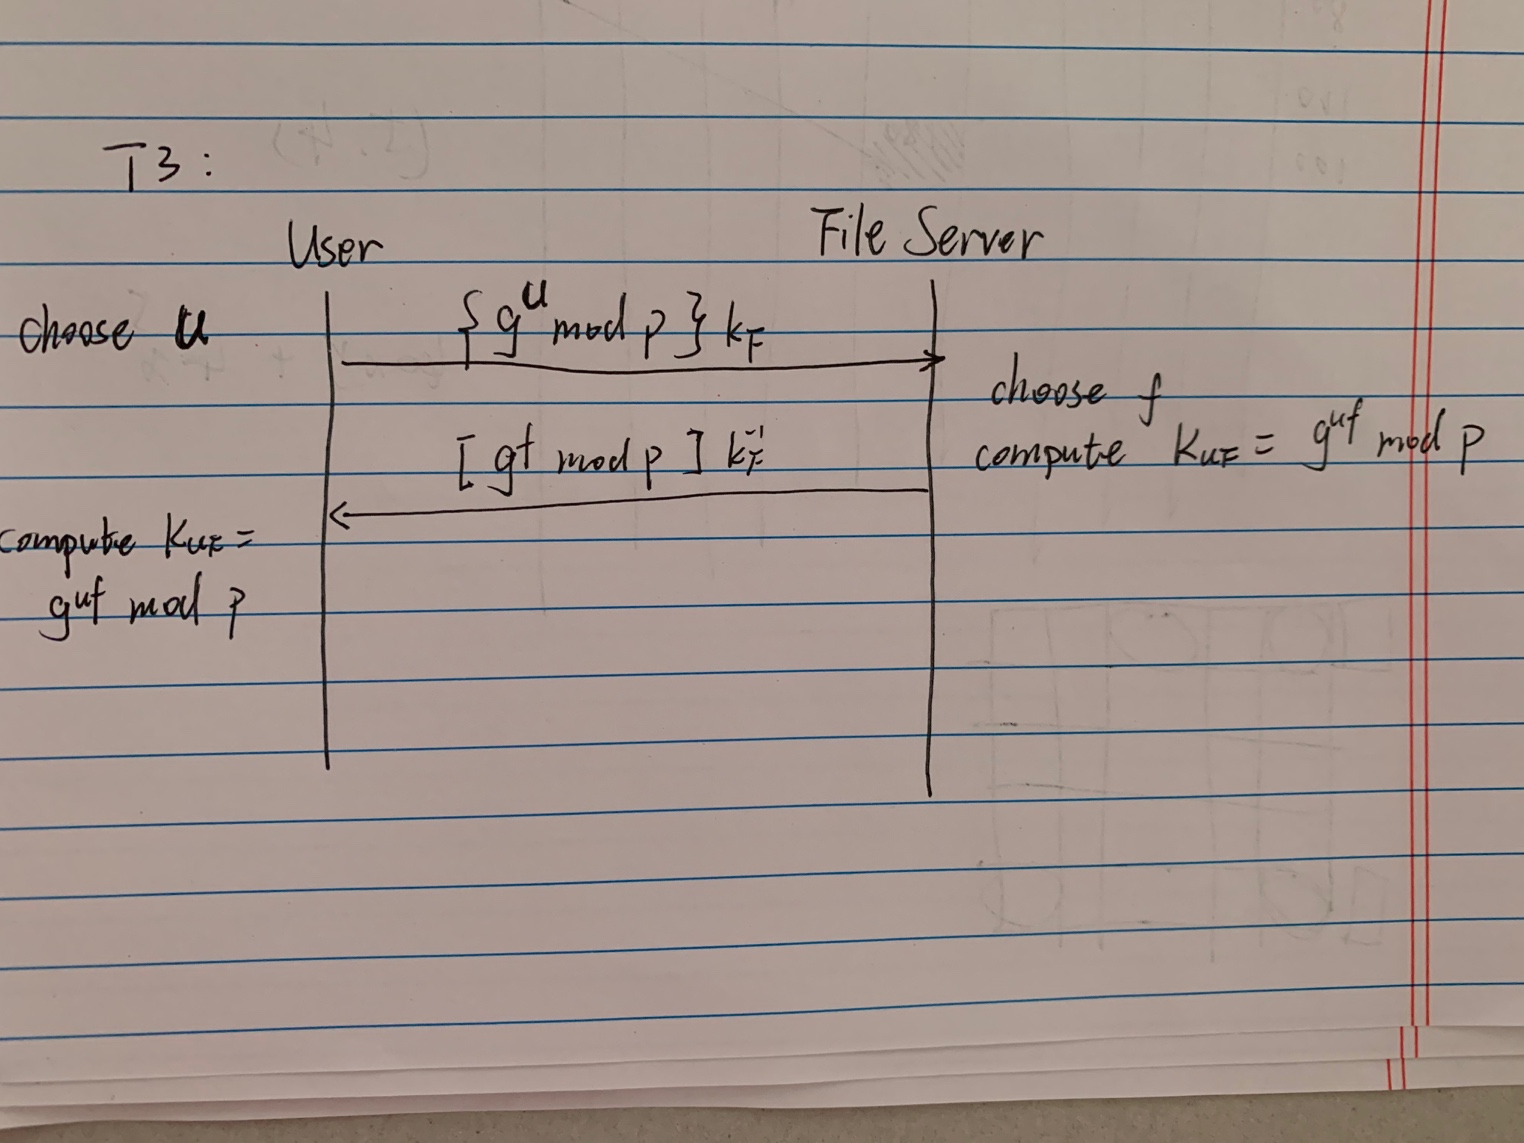 T3:
User
File Server
choose u
{g^u mod p} k_F
choose f
compute K_UF = g^uf mod p
[g^f mod p] k_F^-1
compute K_UF =
g^uf mod p